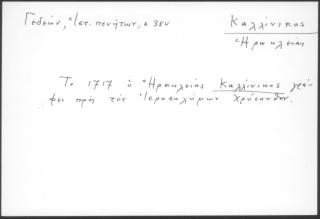 Γεδεών, Πατ. πινάκων, σ 380
Καλλίνικος
Ἡρακλείας
Τὸ 1717 ὁ Ἡρακλείας Καλλίνικος γρά-
φει πρὸς τὸν Ἱεροσολύμων Χρύσανθον.